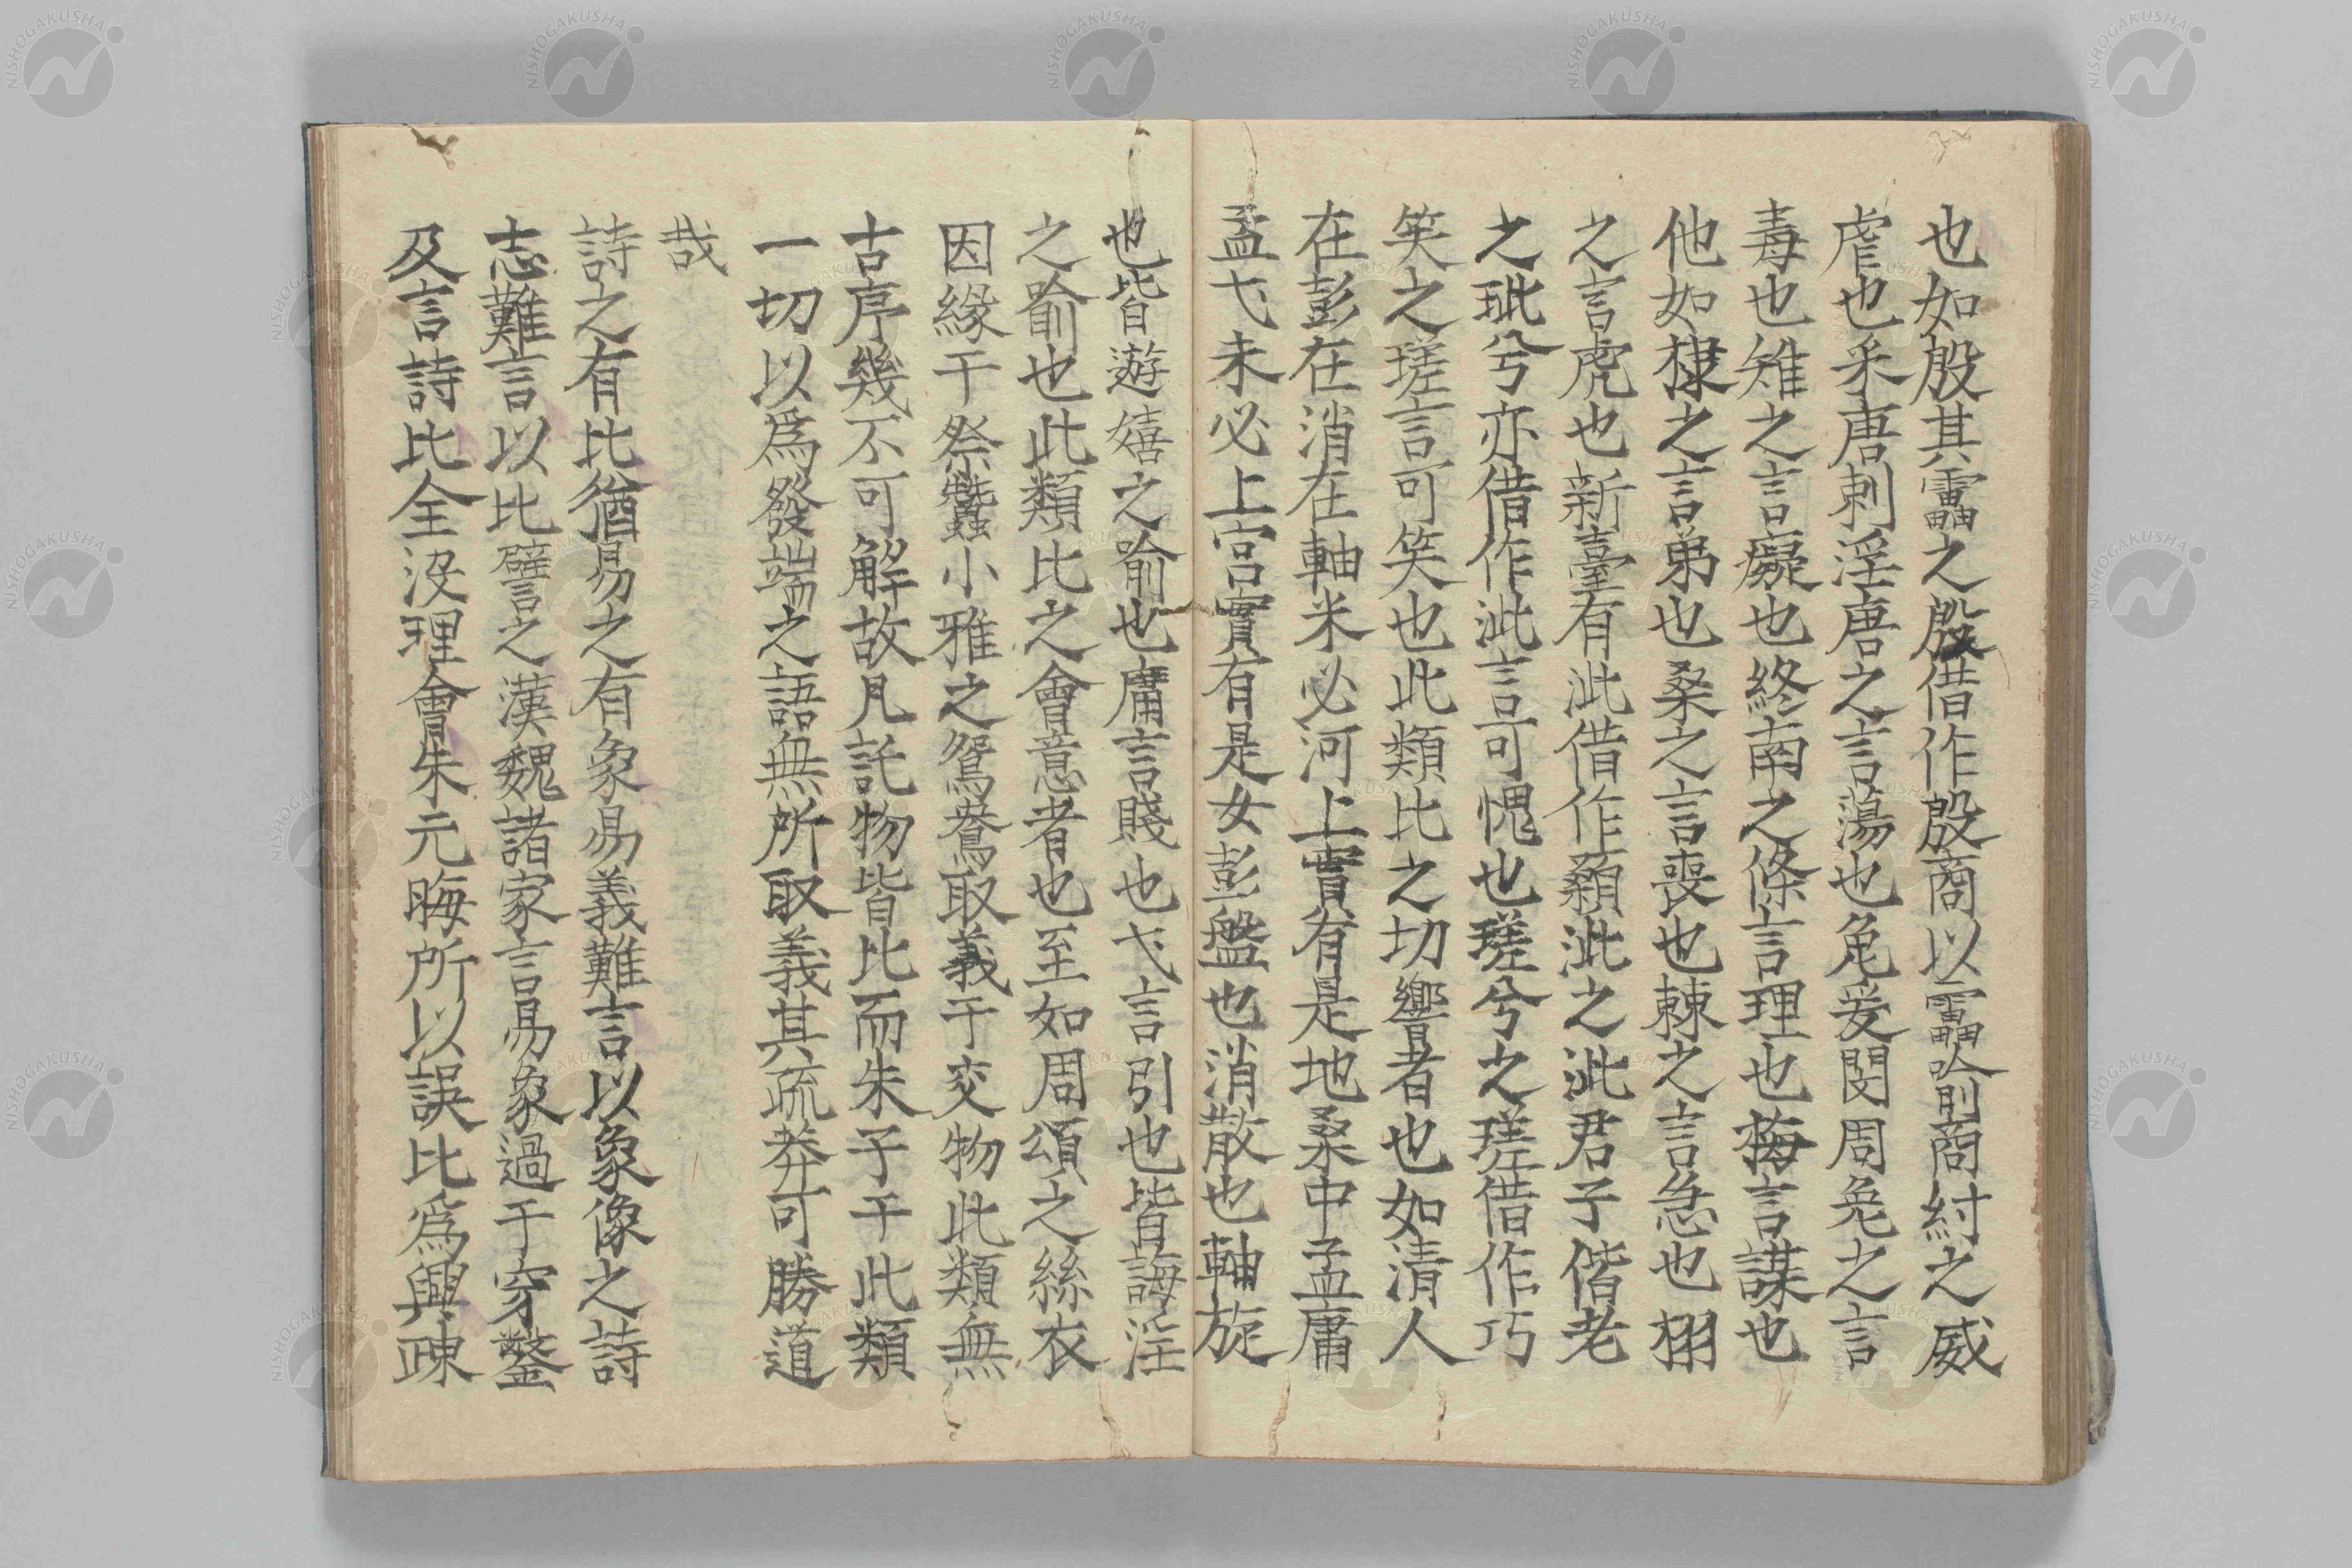 也如殷其靁之殷借作殷商以靁喻商紂之威
虐也采唐刺淫唐之言蕩也兔爰閔周兔之言
毒也雉之言癡也終南之條言理也梅言謀也
他如棣之言弟也桑之言喪也棘之言急也栩
之言虎也新臺有泚借作顙泚之泚君子偕老
之玼兮亦借作泚言可愧也瑳兮之瑳借作巧
笑之瑳言可笑也此類比之切響者也如清人
在彭在消在軸米必河上實有是地桑中孟庸
孟弋未必上宮實有是女彭盤也消散也軸旋
也皆遊嬉之喻也庸言賤也弋言引也皆誨淫
之喻也此類比之會意者也至如周頌之絲衣
因緣于祭蠶小雅之鴛鴦取義于交物此類無
古序幾不可解故凡託物皆比而朱子于此類
一切以爲發端之語無所取義其疏莽可勝道
哉
詩之有比猶易之有象易義難言以象像之詩
志難言以比譬之漢魏諸家言易象過于穿鑿
及言詩比全沒理會朱元晦所以誤比爲興疎
NISHOGAKUSHA